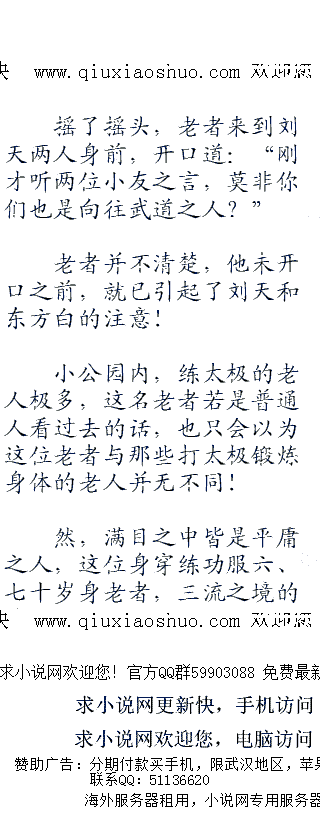 快 www.qiuxiaoshuo.com 欢迎您
摇了摇头，老者来到刘
天两人身前，开口道：“刚
才听两位小友之言，莫非你
们也是向往武道之人？”
老者并不清楚，他未开
口之前，就已引起了刘天和
东方白的注意！
小公园内，练太极的老
人极多，这名老者若是普通
人看过去的话，也只会以为
这位老者与那些打太极锻炼
身体的老人并无不同！
然，满目之中皆是平庸
之人，这位身穿练功服六、
七十岁身老者，三流之境的
快 www.qiuxiaoshuo.com 欢迎您
求小说网欢迎您！官方QQ群59903088 免费最新
求小说网更新快，手机访问
求小说网欢迎您，电脑访问
赞助广告：分期付款买手机，限武汉地区，苹果
联系QQ：51136620
海外服务器租用，小说网专用服务器